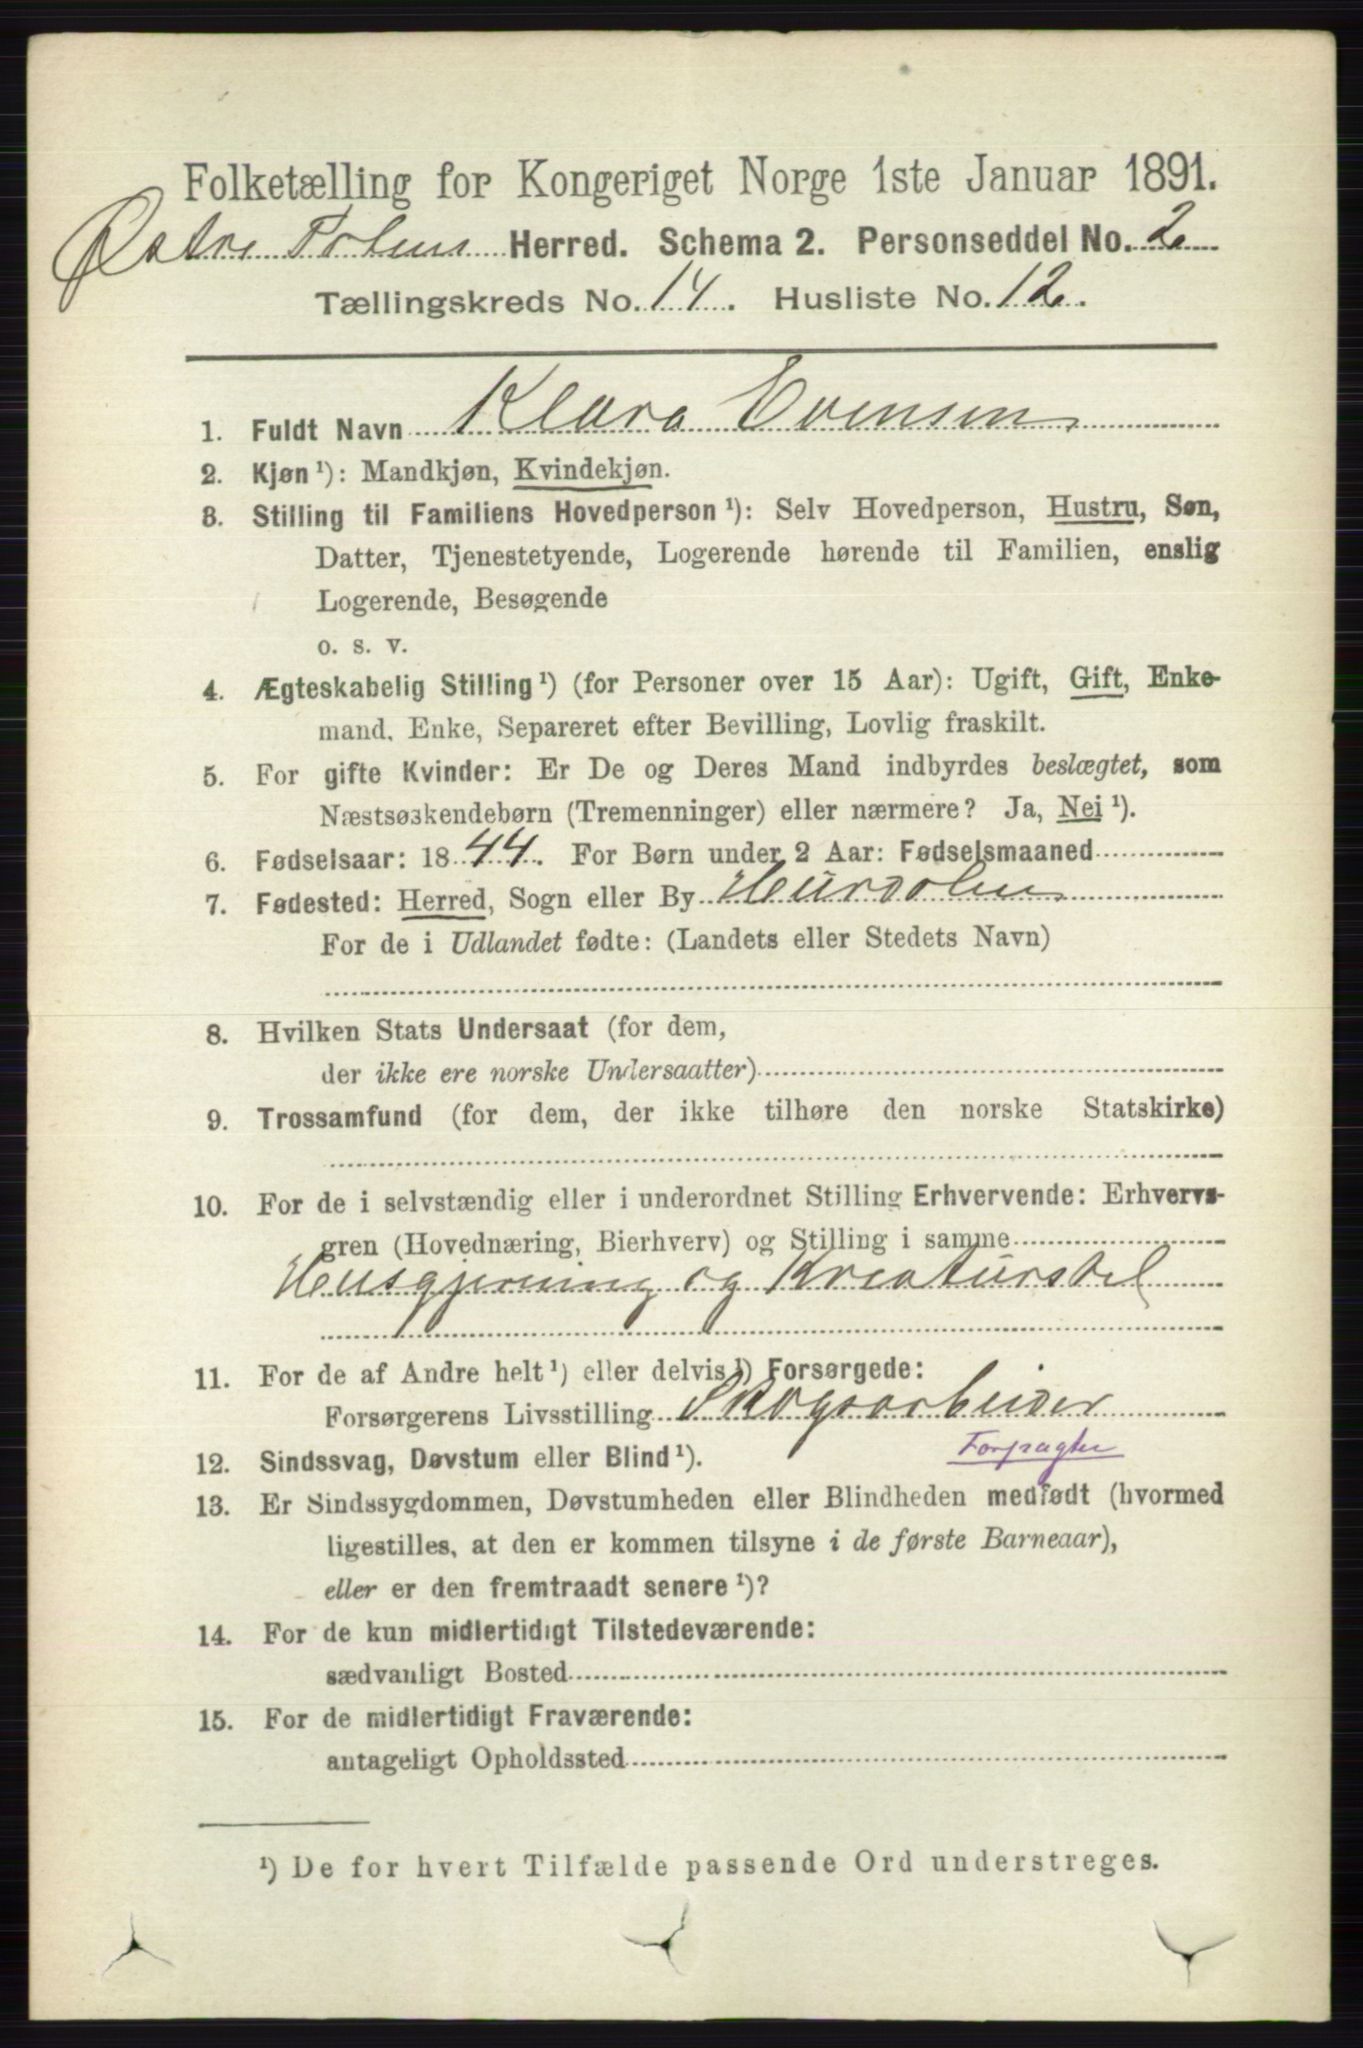 Folketælling for Kongeriget Norge 1ste Januar 1891.
Østre Toten Herred. Schema 2. Personseddel No. 2
Tællingskreds No. 14. Husliste No. 12.
1. Fuldt Navn Klara Evensen
2. Kjøn¹): Mandkjøn, Kvindekjøn.
3. Stilling til Familiens Hovedperson¹): Selv Hovedperson, Hustru, Søn,
Datter, Tjenestetyende, Logerende hørende til Familien, enslig
Logerende, Besøgende
o. s. v.
4. Ægteskabelig Stilling¹) (for Personer over 15 Aar): Ugift, Gift, Enke-
mand, Enke, Separeret efter Bevilling, Lovlig fraskilt.
5. For gifte Kvinder: Er De og Deres Mand indbyrdes beslægtet, som
Næstsøskendebørn (Tremenninger) eller nærmere? Ja, Nei¹).
6. Fødselsaar: 1844. For Børn under 2 Aar: Fødselsmaaned
7. Fødested: Herred, Sogn eller By Hurdalen
For de i Udlandet fødte: (Landets eller Stedets Navn)
8. Hvilken Stats Undersaat (for dem,
der ikke ere norske Undersaatter)
9. Trossamfund (for dem, der ikke tilhøre den norske Statskirke)
10. For de i selvstændig eller i underordnet Stilling Erhvervende: Erhvervs-
gren (Hovednæring, Bierhverv) og Stilling i samme
Husgjerning og Kreaturstel
11. For de af Andre helt¹) eller delvis¹) Forsørgede:
Forsørgerens Livsstilling Skogsarbeider
Forpagter
12. Sindssvag, Døvstum eller Blind¹).
13. Er Sindssygdommen, Døvstumheden eller Blindheden medfødt (hvormed
ligestilles, at den er kommen tilsyne i de første Barneaar),
eller er den fremtraadt senere¹)?
14. For de kun midlertidigt Tilstedeværende:
sædvanligt Bosted
15. For de midlertidigt Fraværende:
antageligt Opholdssted
¹) De for hvert Tilfælde passende Ord understreges.